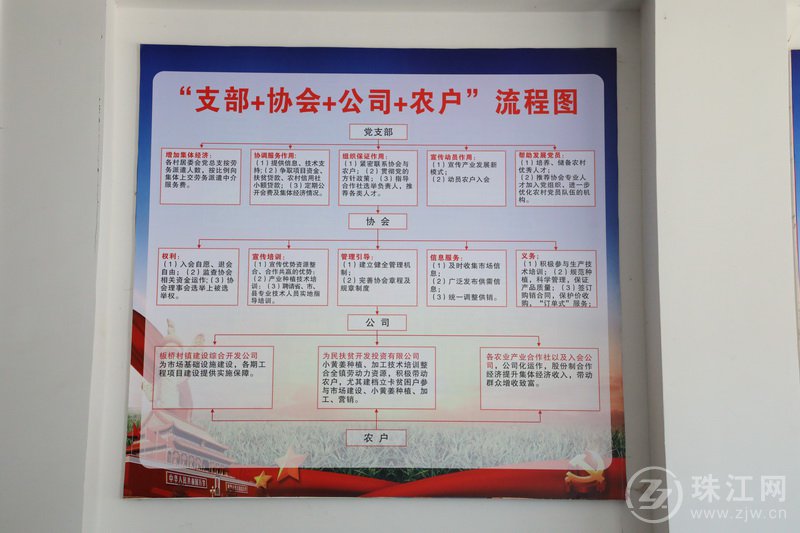 “支部+协会+公司+农户”流程图
党支部
增加集体经济:
各村居委会党总支按劳
务派遣人数，按比例向
集体上交劳务派遣中介
服务费。
协调服务作用:
(1)提供信息、技术支
持;(2)争取项目资金、
扶贫贷款、农村信用社
小额贷款;(3)定期公
开会费及集体经济情况。
组织保证作用:
(1)紧密联系协会与
农户;(2)贯彻党的
方针政策;(3)指导
合作社选举负责人，推
荐各类人才。
宣传动员作用:
(1)宣传产业发展新
模式;
(2)动员农户入会
帮助发展党员:
(1)培养、储备农村
优秀人才;
(2)推荐协会专业人
才加入党组织，进一步
优化农村党员队伍的机
构。
协会
权利:
(1)入会自愿、退会
自由;(2)监查协会
相关资金运作;(3)协
会理事会选举上被选
举权。
宣传培训:
(1)宣传优势资源整
合、合作共赢的优势;
(2)产业种植技术培
训;(3)聘请省、市、
县专业技术人员实地指
导培训。
管理引导:
(1)建立健全管理机
制;
(2)完善协会章程及
规章制度
信息服务:
(1)及时收集市场信
息;
(2)广泛发布供需信
息;
(3)统一调整供销。
义务:
(1)积极参与生产技
术培训;(2)规范种
植，科学管理，保证
产品质量;(3)签订
购销合同，保护价收
购，“订单式”服务;
公司
板桥村镇建设综合开发公司
为市场基础设施建设，各期工
程项目建设提供实施保障。
为民扶贫开发投资有限公司
小黄姜种植、加工技术培训整
合全镇劳动力资源，积极带动
农户，尤其建档立卡贫困户参
与市场建设、小黄姜种植、加
工、营销。
各农业产业合作社以及入会公
司，公司化运作，股份制合作
经济提升集体经济收入，带动
群众增收致富。
农户
中华人民共和国万岁
珠江网
www.zjw.cn